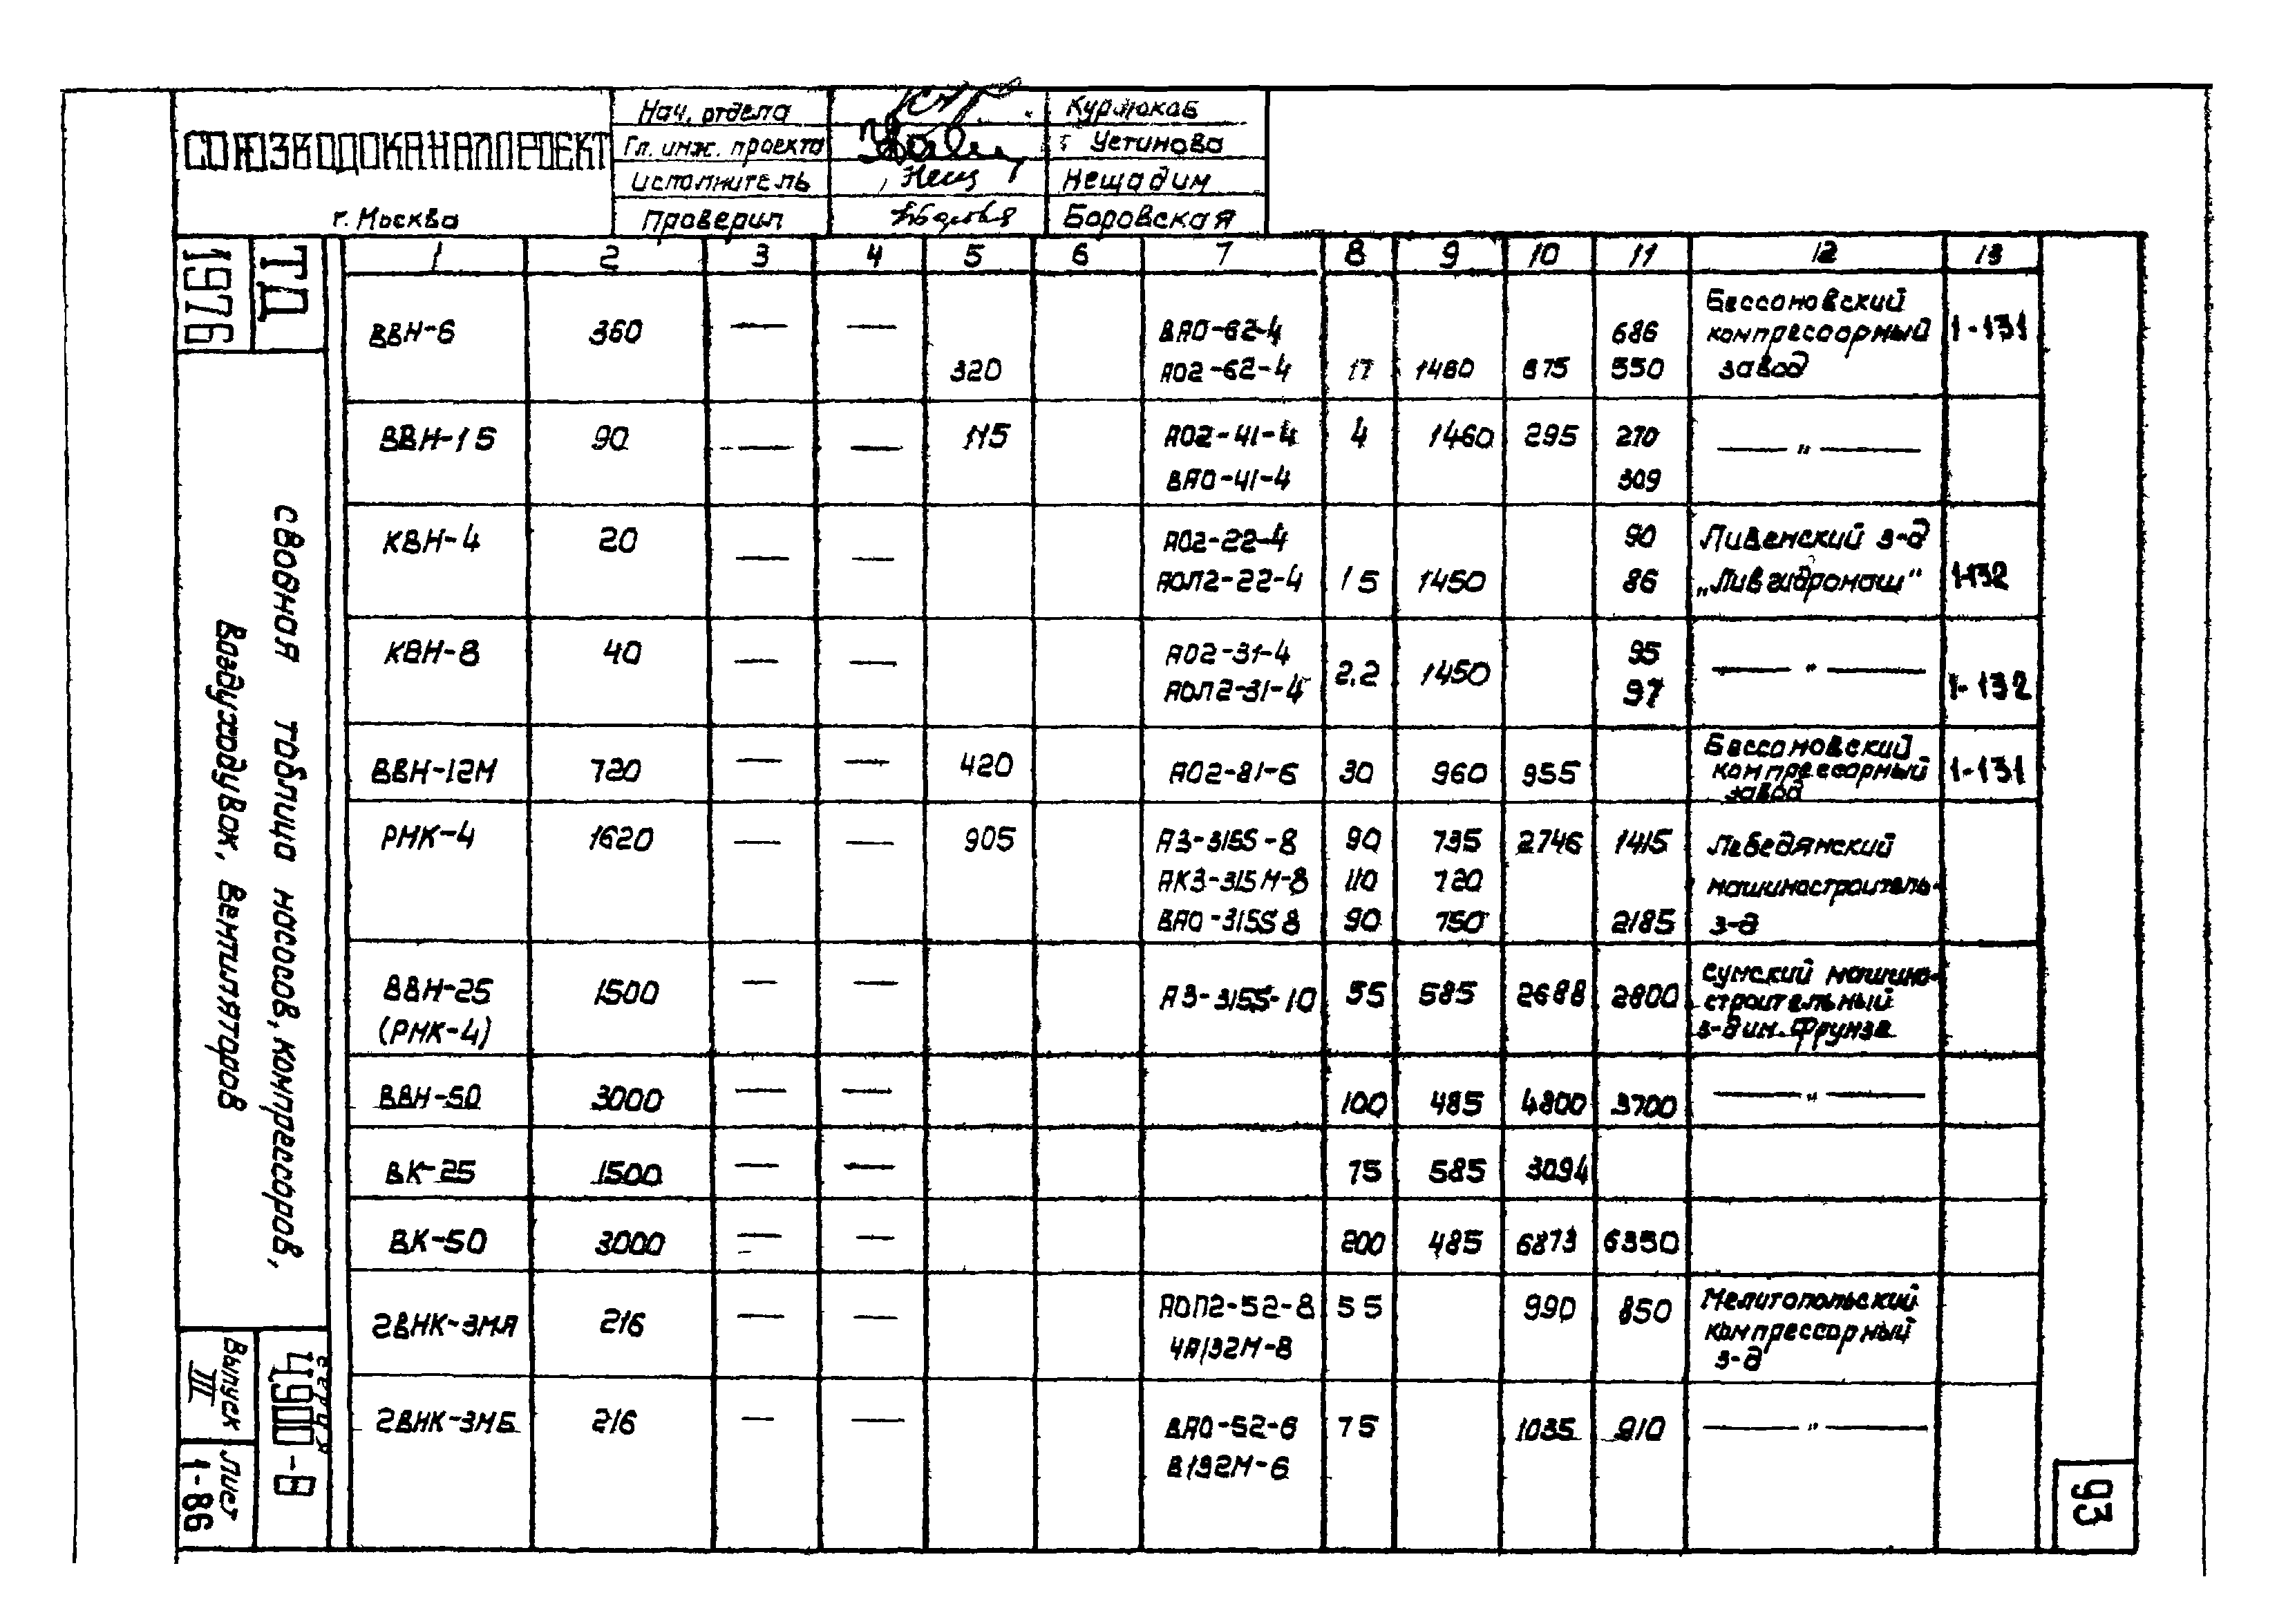 СОЮЗВОДОКАНАЛПРОЕКТ
г. Москва
Нач. отдела
Гл. инж. проекта Устинова
Исполнитель Нещ Нещадим
Проверил Боровская
ТД
1976
сводная таблица насосов, компрессоров,
воздуходувок, вентиляторов
Серия
4.900-8
Выпуск
III
Лист
1-86
1 2 3 4 5 6 7 8 9 10 11 12 13
Бессоновский
ВВН-6 360 — — ВАО-62-4 686 компрессорный 1-131
320 АО2-62-4 17 1460 675 550 завод
ВВН-1 5 90 — — 115 АО2-41-4 4 1460 295 270 — " —
ВАО-41-4 309
КВН-4 20 — — АО2-22-4 90 Ливенский з-д
АОЛ2-22-4 1 5 1450 86 „Ливгидромаш" 1-132
КВН-8 40 — — АО2-31-4 2.2 1450 95 — " —
АОЛ2-31-4 97 1-132
Бессоновский
ВВН-12М 720 — — 420 АО2-81-6 30 960 955 компрессорный 1-131
завод
РМК-4 1620 — — 905 А3-315S-8 90 735 2746 1415 Лебедянский
АК3-315М-8 110 720 машиностроитель.
ВАО-315S 8 90 750 2185 з-д
ВВН-25 1500 — — А3-315S-10 55 585 2688 2800 Сумский машино-
строительный
(РМК-4) з-д им. Фрунзе
ВВН-50 3000 — — 100 485 4800 3700 — " —
ВК-25 1500 — — 75 585 3094
ВК-50 3000 — — 200 485 6873 6350
2ВНК-3МА 216 — — АОЛ2-52-8 5 5 990 850 Мелитопольский
4А132М-8 компрессорный
з-д
2ВНК-3МБ 216 — — ВАО-52-6 7 5 1035 910 — " —
В132М-6
93